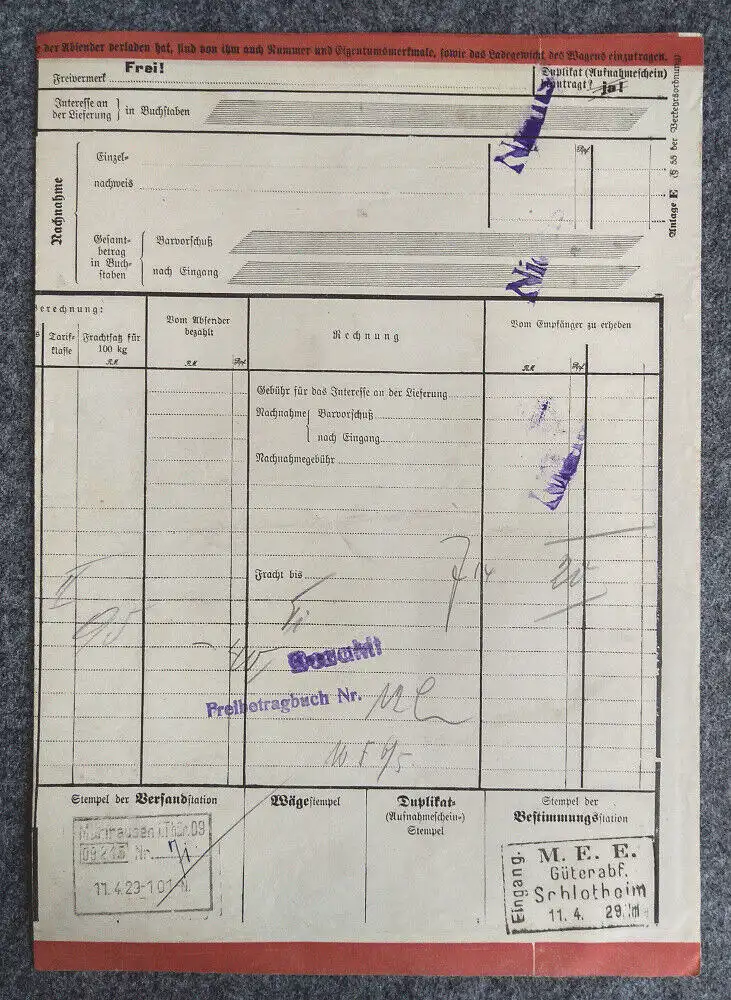 e der Absender verladen hat, sind von ihm auch Nummer und Eigentumsmerkmale, sowie das Ladegewicht des Wagens einzutragen.
Freivermerk Frei!
Duplikat (Aufnahmeschein)
antragt? ja!
Interesse an der Lieferung } in Buchstaben
Anlage E (§ 55 der Verkehrsordnung)
Nachnahme
Einzel-
nachweis
Pf
Gesamt-
betrag
in Buch-
staben
Barvorschuß
nach Eingang
erechnung:
Tarif-
klasse
Frachtsatz für
100 kg
RM
Vom Absender
bezahlt
RM Pf
Rechnung
Vom Empfänger zu erheben
RM Pf
Gebühr für das Interesse an der Lieferung
Nachnahme { Barvorschuß
nach Eingang
Nachnahmegebühr
Fracht bis
II
95
7 14
20
Bezahlt
Freibetragbuch Nr.
Stempel der Versandstation
Wägestempel
Duplikat-
(Aufnahmeschein-)
Stempel
Stempel der
Bestimmungsstation
Mühlhausen i.Thür.09
09245 Nr.
11.4.29-101
Eingang.
M. E. E.
Güterabf.
Schlotheim
11. 4. 29